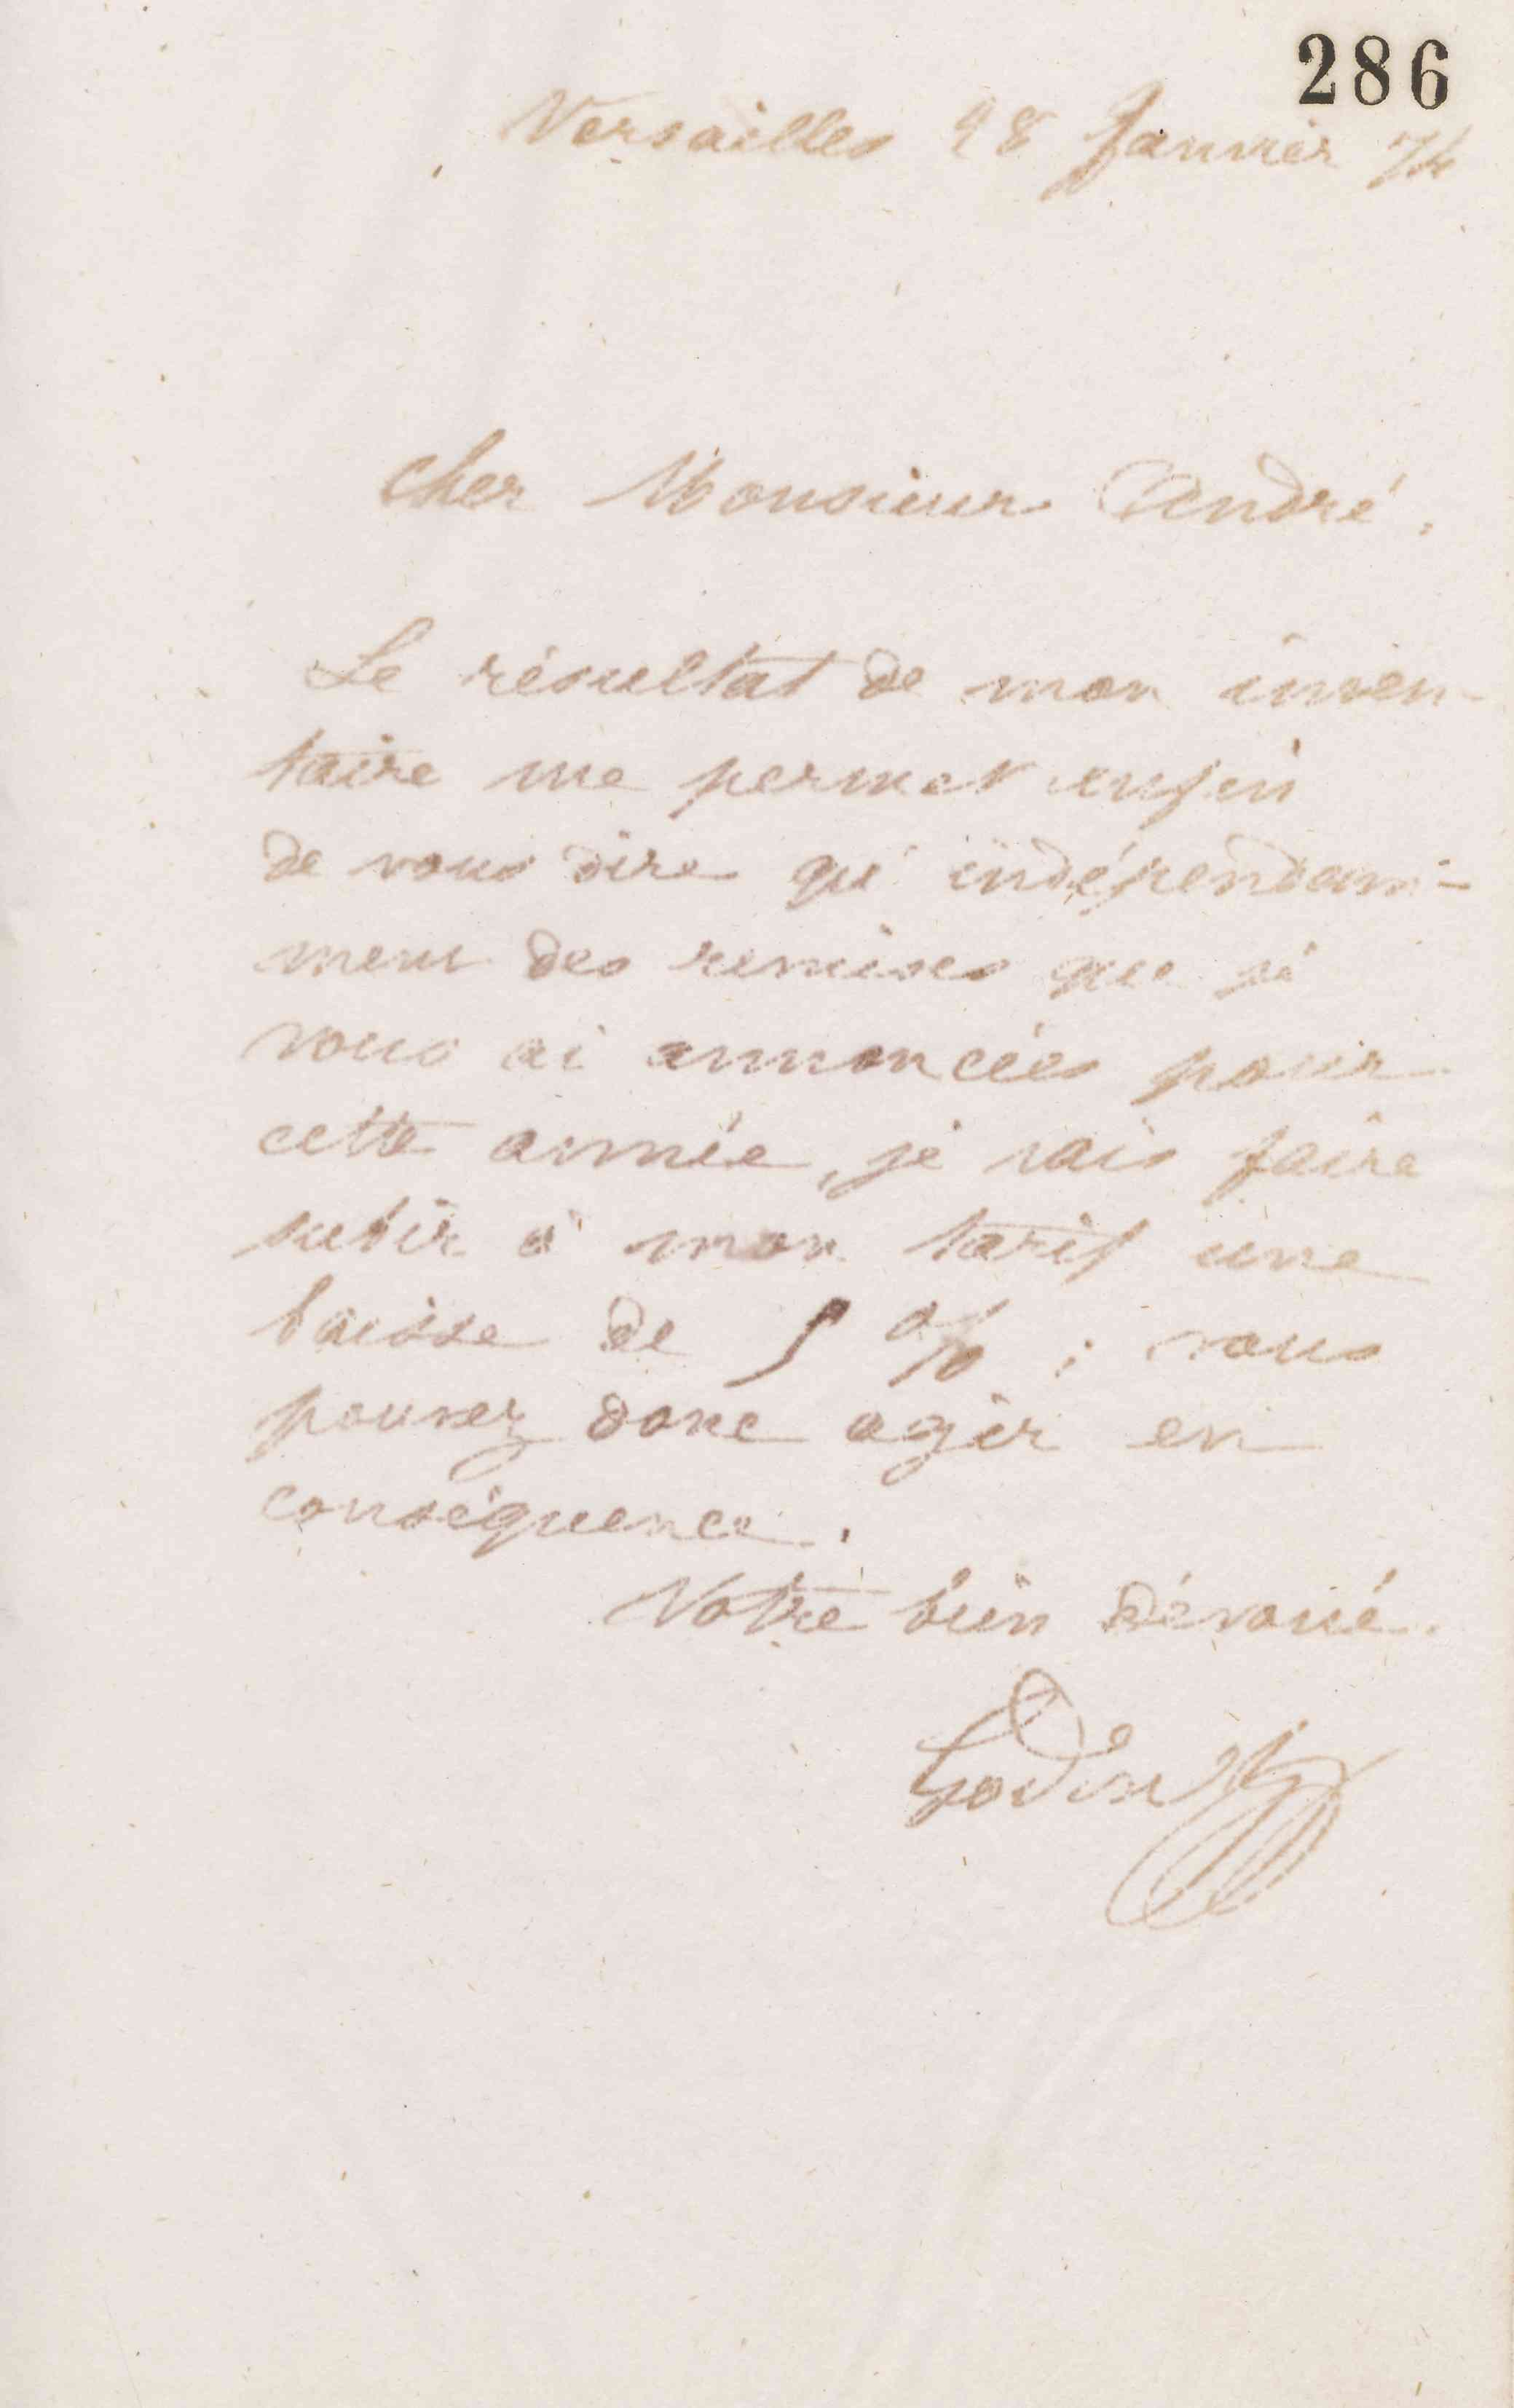 286
Versailles 28 Janvier 74
Cher Monsieur André,
Le résultat de mon inven-
taire me permet enfin
de vous dire qu'indépendam-
ment des remises que je
vous ai annoncées pour
cette année, je vais faire
subir à mon tarif une
baisse de 5 % ; vous
pouvez donc agir en
conséquence.
Votre bien dévoué.
Godin